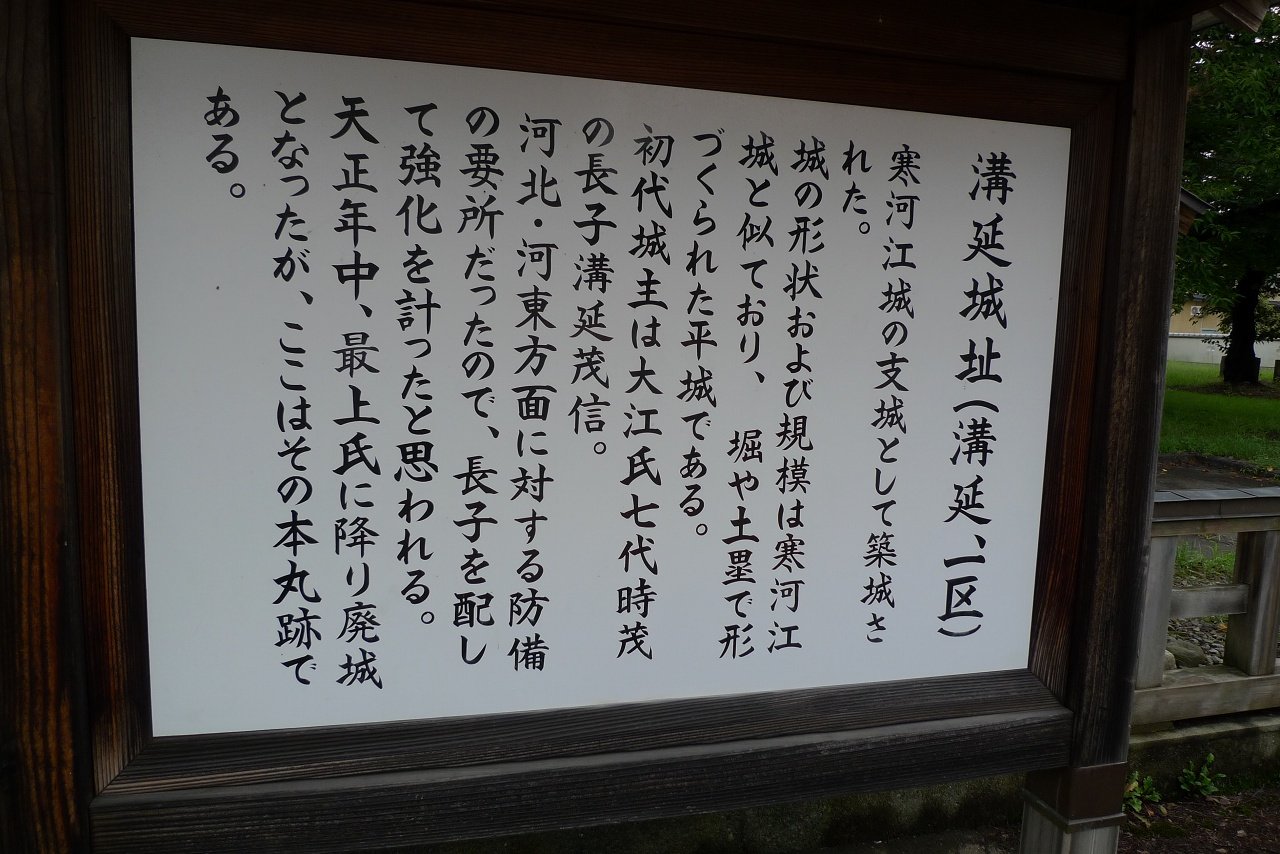 溝延城址(溝延、一区)
寒河江城の支城として築城さ
れた。
城の形状および規模は寒河江
城と似ており、堀や土塁で形
づくられた平城である。
初代城主は大江氏七代時茂
の長子溝延茂信。
河北・河東方面に対する防備
の要所だったので、長子を配し
て強化を計ったと思われる。
天正年中、最上氏に降り廃城
となったが、ここはその本丸跡で
ある。